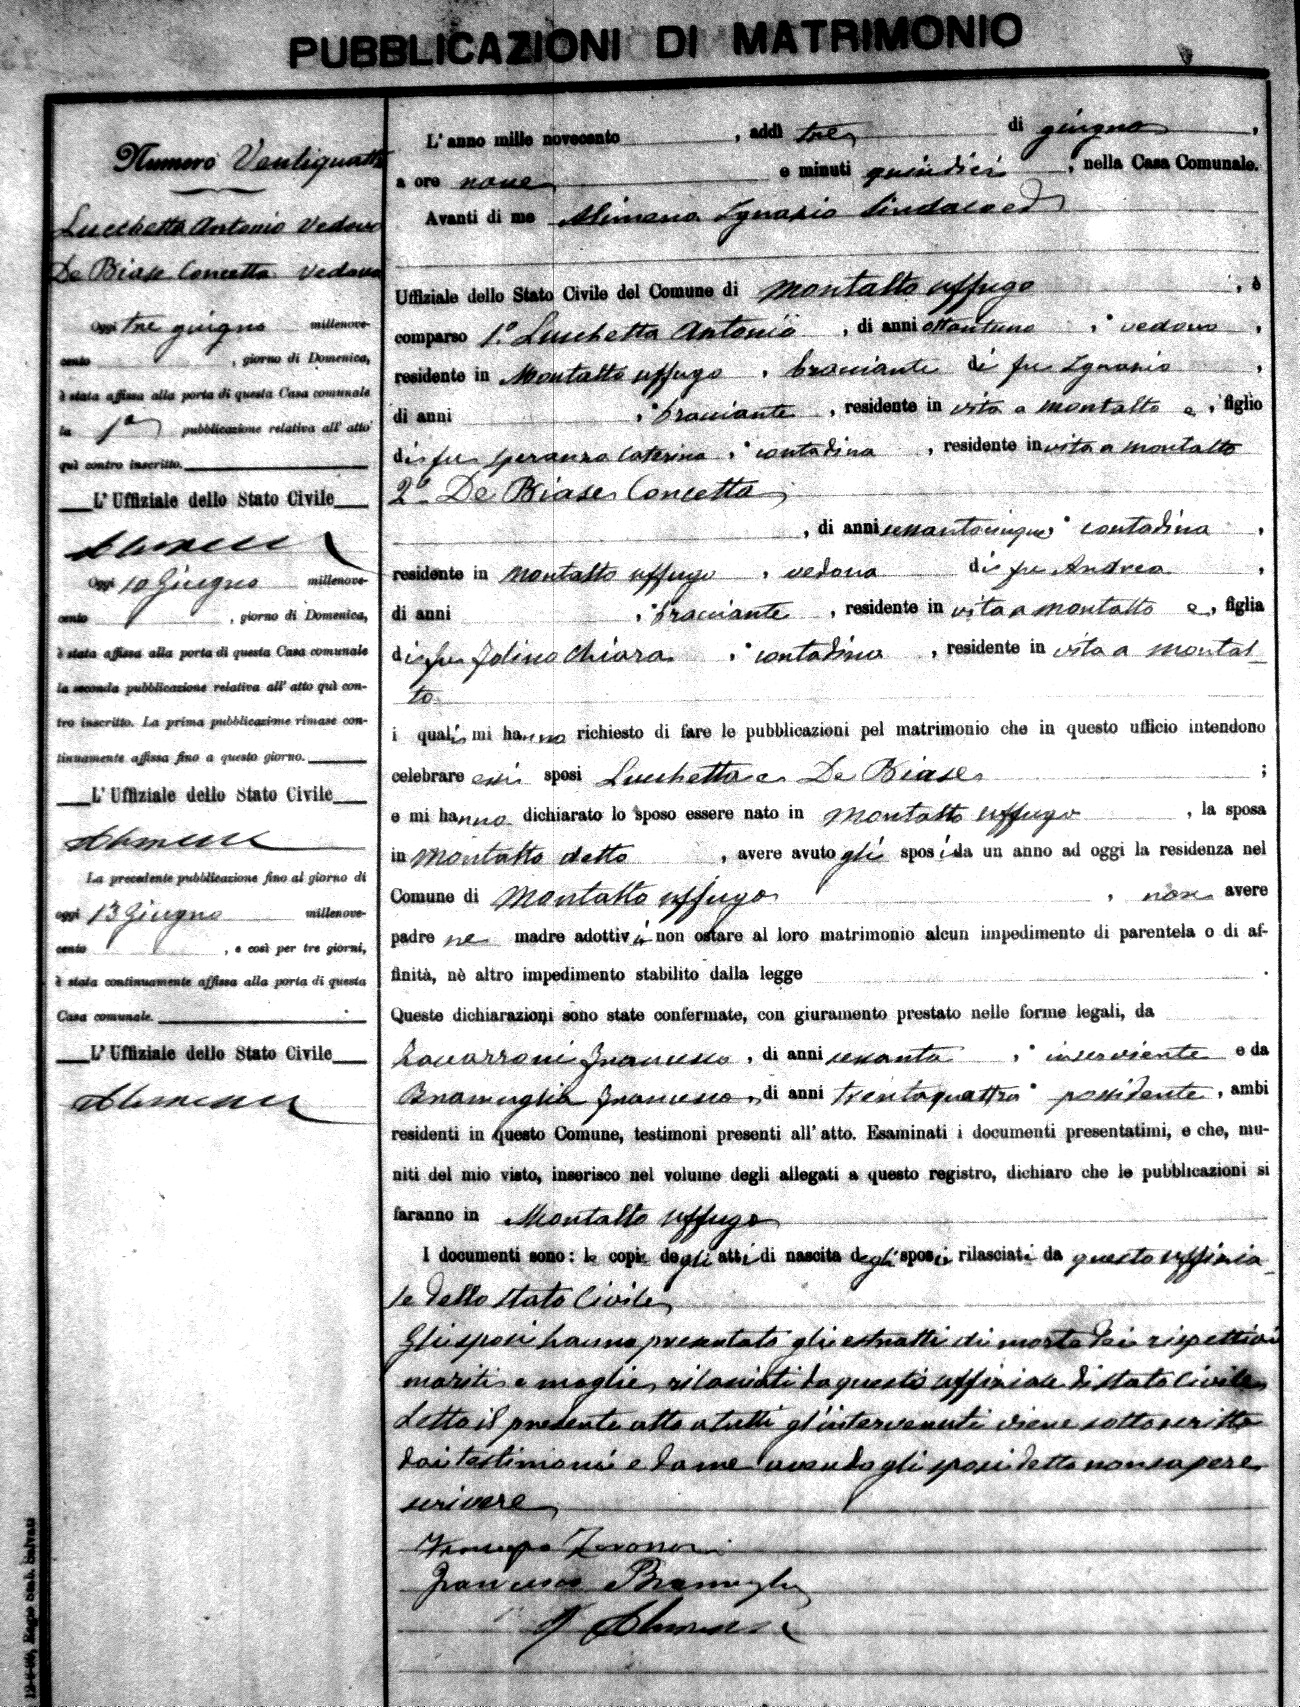 PUBBLICAZIONI DI MATRIMONIO
Numero Ventiquattro
Lucchetta Antonio Vedovo
De Biase Concetta Vedova
Oggi tre giugno millenove-
cento , giorno di Domenica,
è stata affissa alla porta di questa Casa comunale
la 1a pubblicazione relativa all' atto
quì contro inscritto.
L' Uffiziale dello Stato Civile
Oggi 10 Giugno millenove-
cento , giorno di Domenica,
è stata affissa alla porta di questa Casa comunale
la seconda pubblicazione relativa all' atto quì con-
tro inscritto. La prima pubblicazione rimase con-
tinuamente affissa fino a questo giorno.
L' Uffiziale dello Stato Civile
La precedente pubblicazione fino al giorno di
oggi 13 Giugno millenove-
cento , e così per tre giorni,
è stata continuamente affissa alla porta di questa
Casa comunale.
L' Uffiziale dello Stato Civile
L' anno mille novecento , addì tre di giugno ,
a ore nove e minuti quindici , nella Casa Comunale.
Avanti di me Alimena Ignazio Sindaco ed
Uffiziale dello Stato Civile del Comune di Montalto Uffugo , è
comparso 1.º Lucchetta Antonio , di anni ottantuno , vedovo ,
residente in Montalto Uffugo , bracciante di fu Ignazio ,
di anni , bracciante , residente in vita a Montalto e , figlio
di fu Speranza Caterina , contadina , residente in vita a Montalto
2º De Biase Concetta
, di anni sessantacinque contadina ,
residente in Montalto Uffugo , vedova di fu Andrea ,
di anni , bracciante , residente in vita a Montalto e , figlia
di fu Folino Chiara , contadina , residente in vita a Montal-
to
i quali mi hanno richiesto di fare le pubblicazioni pel matrimonio che in questo ufficio intendono
celebrare essi sposi Lucchetta e De Biase ;
e mi hanno dichiarato lo sposo essere nato in Montalto Uffugo , la sposa
in Montalto detto , avere avuto gli sposi da un anno ad oggi la residenza nel
Comune di Montalto Uffugo , non avere
padre ne madre adottivi non ostare al loro matrimonio alcun impedimento di parentela o di af-
finità, nè altro impedimento stabilito dalla legge .
Queste dichiarazioni sono state confermate, con giuramento prestato nelle forme legali, da
Francesco , di anni sessanta , inserviente e da
Bramuglia Francesco , di anni trentaquattro possidente , ambi
residenti in questo Comune, testimoni presenti all' atto. Esaminati i documenti presentatimi, e che, mu-
niti del mio visto, inserisco nel volume degli allegati a questo registro, dichiaro che le pubblicazioni si
faranno in Montalto Uffugo
I documenti sono: le copie degli atti di nascita degli sposi rilasciati da questo Uffizia-
le dello Stato Civile
Gli sposi hanno presentato gli estratti di morte dei rispettivi
mariti e moglie, rilasciati da questo Uffiziale di Stato Civile
Letto il presente atto a tutti gl'intervenuti viene sottoscritto
dai testimoni e da me avendo gli sposi detto non sapere
scrivere
Francesco Bramuglia